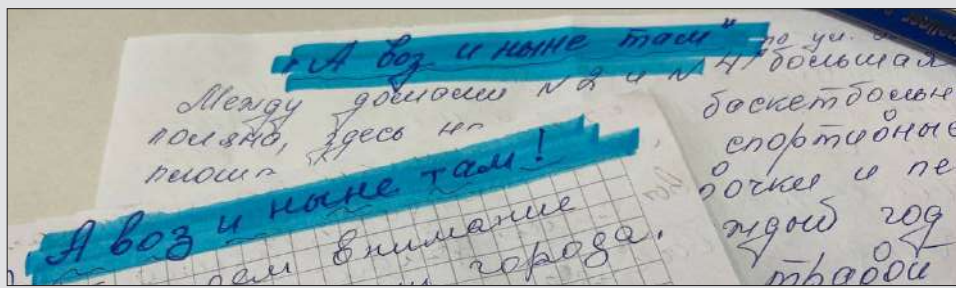 "А воз и ныне там"
по ул.
Между домами N2 и N4 большая
поляна, здесь
баскетбольн
спортивные
и пе
ждый год
травой
А воз и ныне там!
внимание
города.